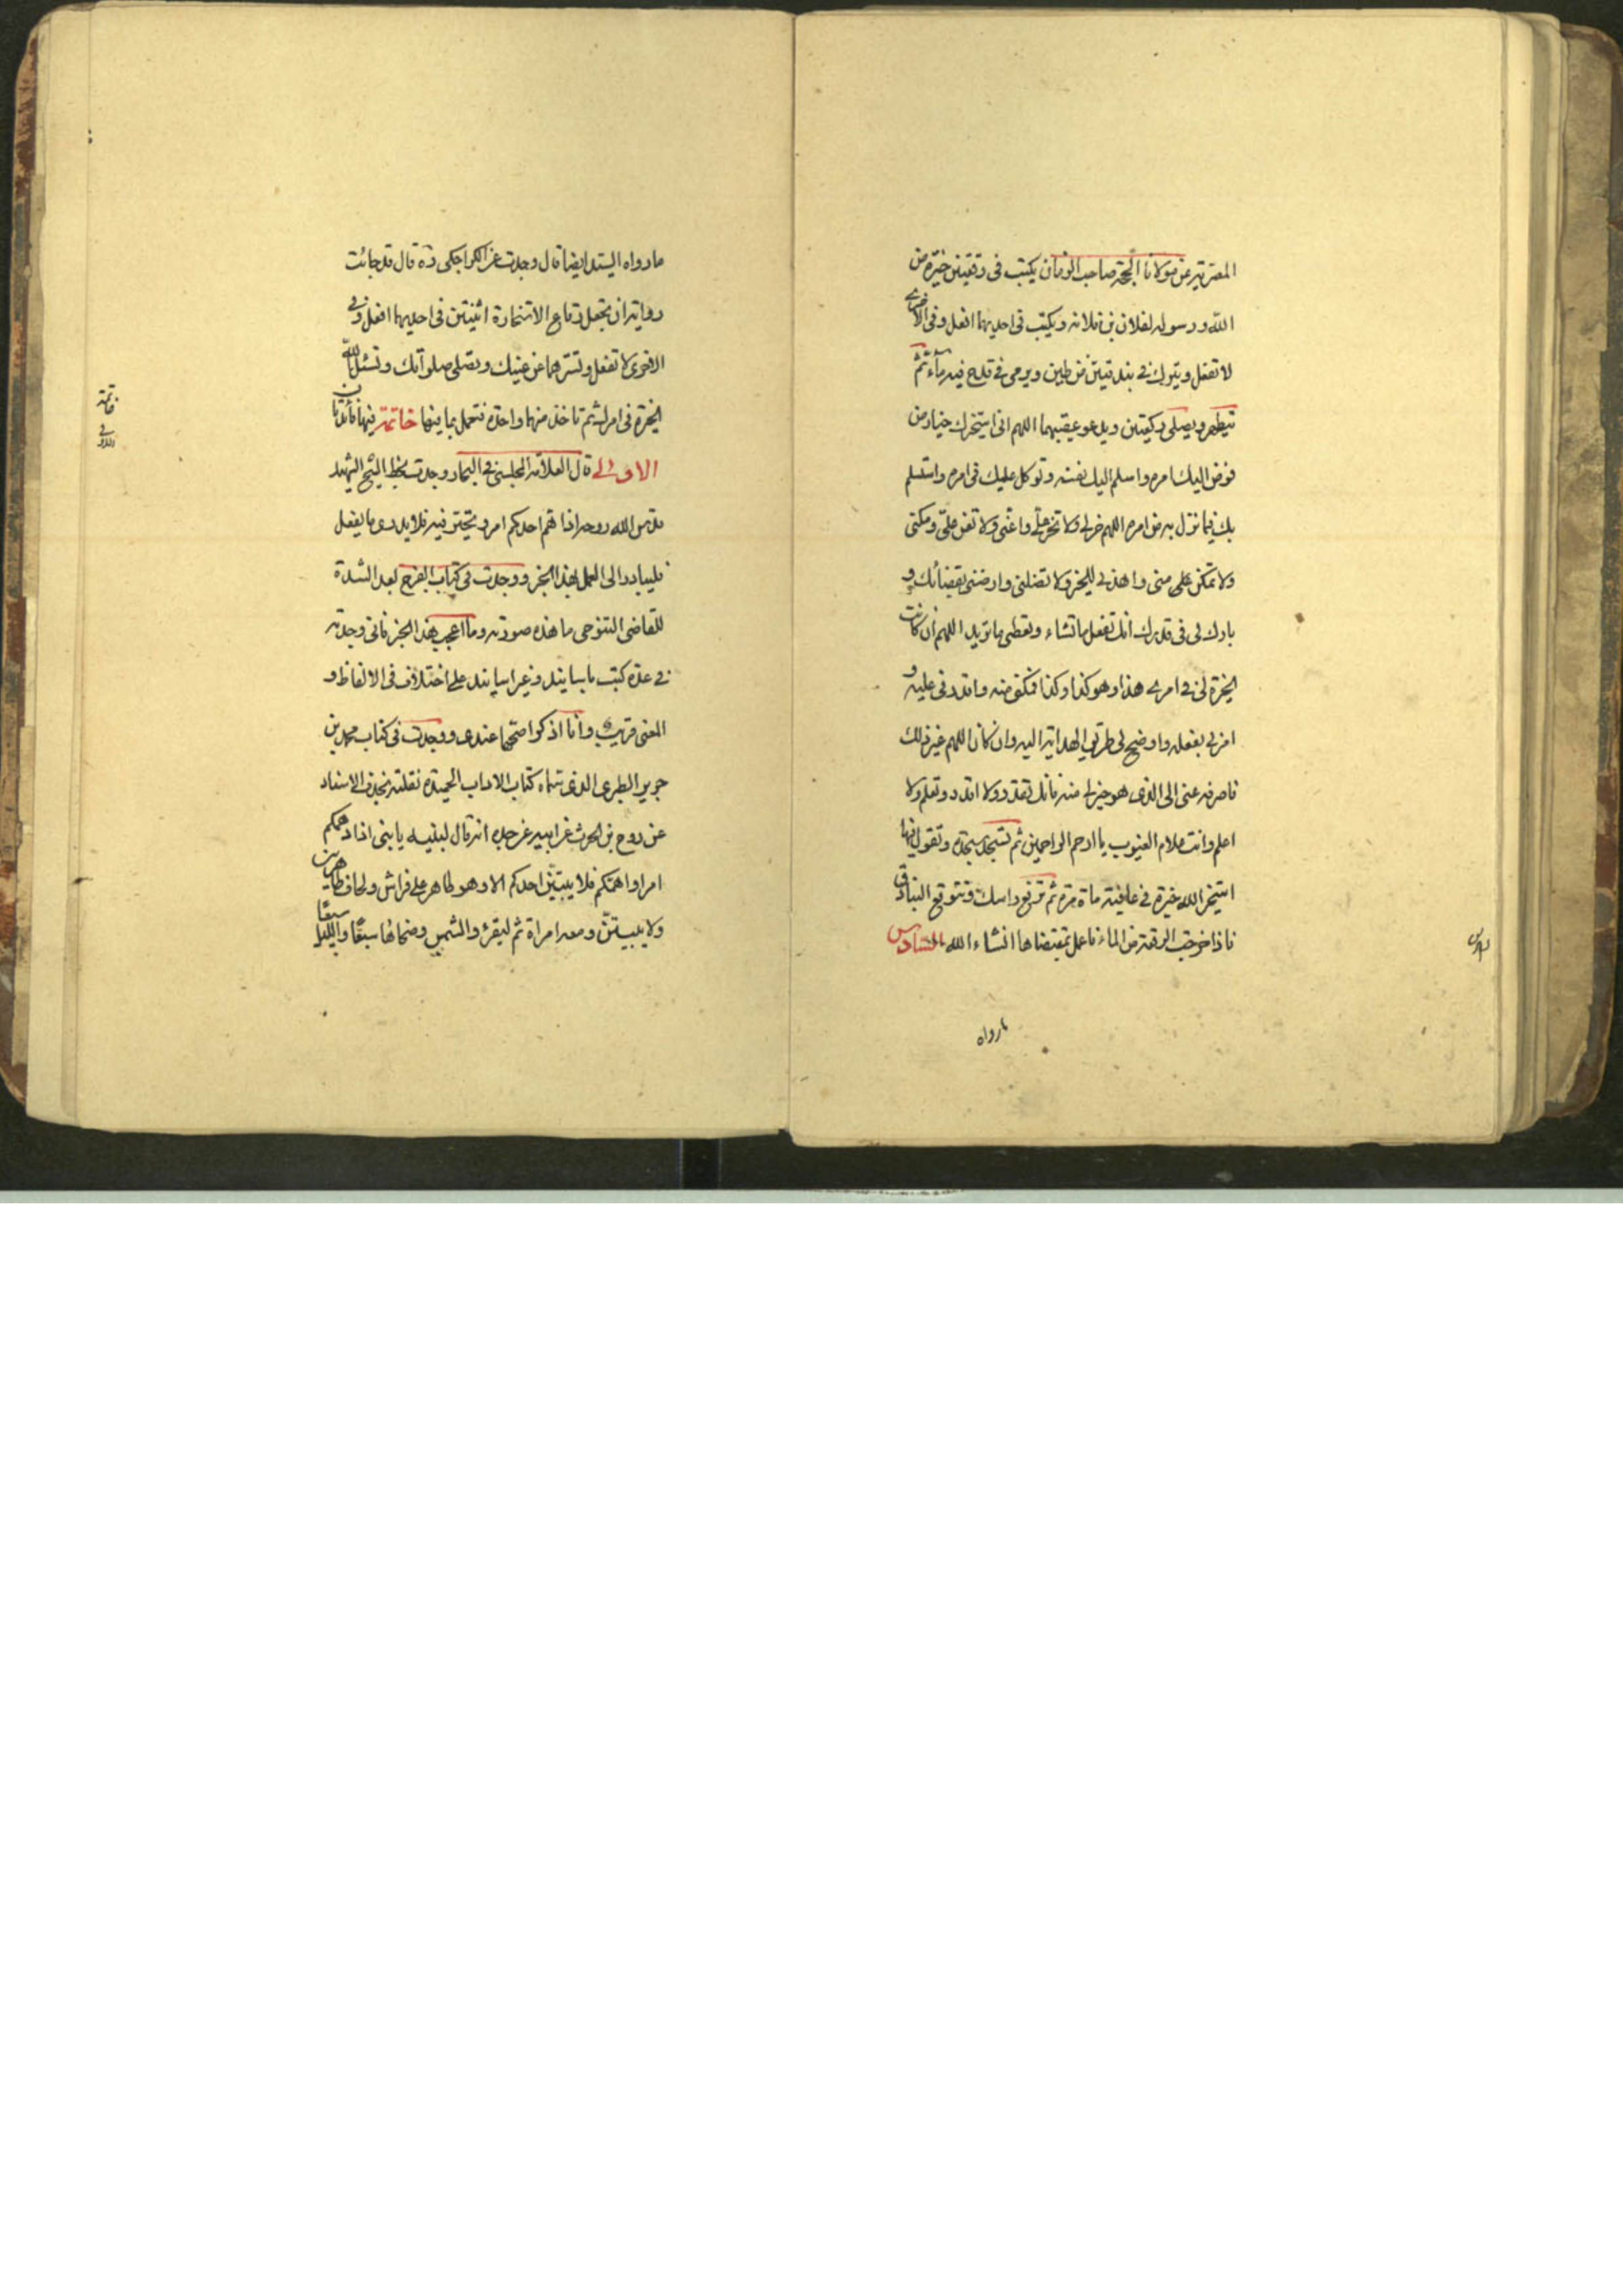 المصرية عن مولانا الحجة صاحب الزمان يكتب فى رقعتين خيرة من
الله ورسوله لفلان بن فلانه ويكتب فى احديهما افعل وفى الاخرى
لا تفعل ويترك فى بندقتين من طين ويرمى فى قدح فيه ماء ثم
يتطهر ويصلى ركعتين ويدعو عقيبهما اللهم انى استخيرك خيار من
فوض اليك امره واسلم اليك نفسه وتوكل عليك فى امره واستسلم
بك فيما نزل به من امره اللهم خر لى ولا تخر على واعنى ولا تعن على ومكنى
ولا تمكن على منى واهدنى للخير ولا تضلنى وارضنى بقضائك و
بارك لى فى قدرك انك تفعل ما تشاء وتعطى ما تريد اللهم ان كانت
الخيرة لى فى امرى هذا وهو كذا وكذا فمكنى منه واقدرنى عليه و
امرنى بفعله واوضح لى طريق الهداية اليه وان كان اللهم غير ذلك
فاصرفه عنى الى الذى هو خير لى منه فانك تقدر ولا اقدر وتعلم ولا
اعلم وانت علام الغيوب يا ارحم الراحمين ثم تسجد سجدة وتقول فيها
استخير الله خيرة فى عافية مأة مرة ثم ترفع راسك وتتوقع البنادق
فاذا خرجت الرقعة من الماء فاعمل بمقتضاها انشاء الله السادس
مارواه
مارواه السيد ايضا قال وجدت عن الكراجكى ره قال قد جائت
رواية ان تجعل رقاع الاستخارة اثنيتين فى احديهما افعل وفى
الاخرى لا تفعل وتسترهما عن عينيك وتصلى صلوتك وتسئل الله
الخيرة فى امرك ثم تاخذ منهما واحدة فتعمل بما فيها خاتمة فيها فائدتان
الاولى قال العلامة المجلسى فى البحار وجدت بخط الشيخ الشهيد
قدس الله روحه اذا هم احدكم امر وتحير فيه فلا يدرى ما يفعل
فليبادر الى العمل بهذا الخبر ووجدت فى كتاب الفرج بعد الشدة
للقاضى التنوخى ما هذه صورته وما اعجب هذا الخبر فانى وجدته
فى عدة كتب باسانيد وغير اسانيد على اختلاف فى الالفاظ و
المعنى قريب وانا اذكر اصحها عندى ووجدت فى كتاب محمد بن
جرير الطبرى الذى سماه كتاب الاداب الحميدة نقلته بحذف الاسناد
عن روح بن الحرث عن ابيه عن جده انه قال لبنيه يا بنى اذا دهمكم
امر او اهمكم فلا يبيتن احدكم الا وهو طاهر على فراش ولحاف طاهرين
ولا يبيتن ومعه امراة ثم ليقرء والشمس وضحاها سبعًا والليل سبعًا